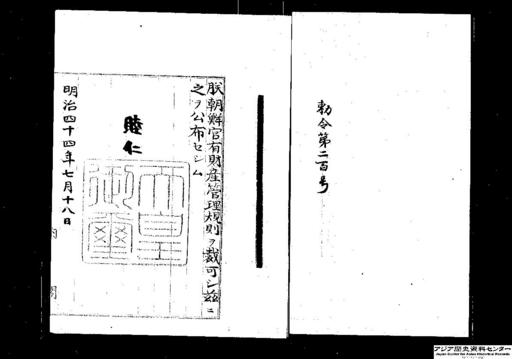 勅令第二百号
朕朝鮮官有財産管理規則ヲ裁可シ茲ニ
之ヲ公布セシム
睦仁
天皇御璽
明治四十四年七月十八日
内
閣
アジア歴史資料センター
Japan Center for Asian Historical Records